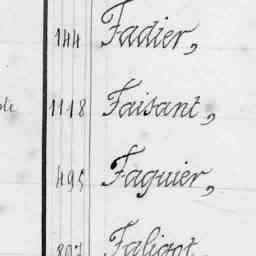 144 Fadier,
1118 Faisant,
495 Faguier,
807 Faligot,